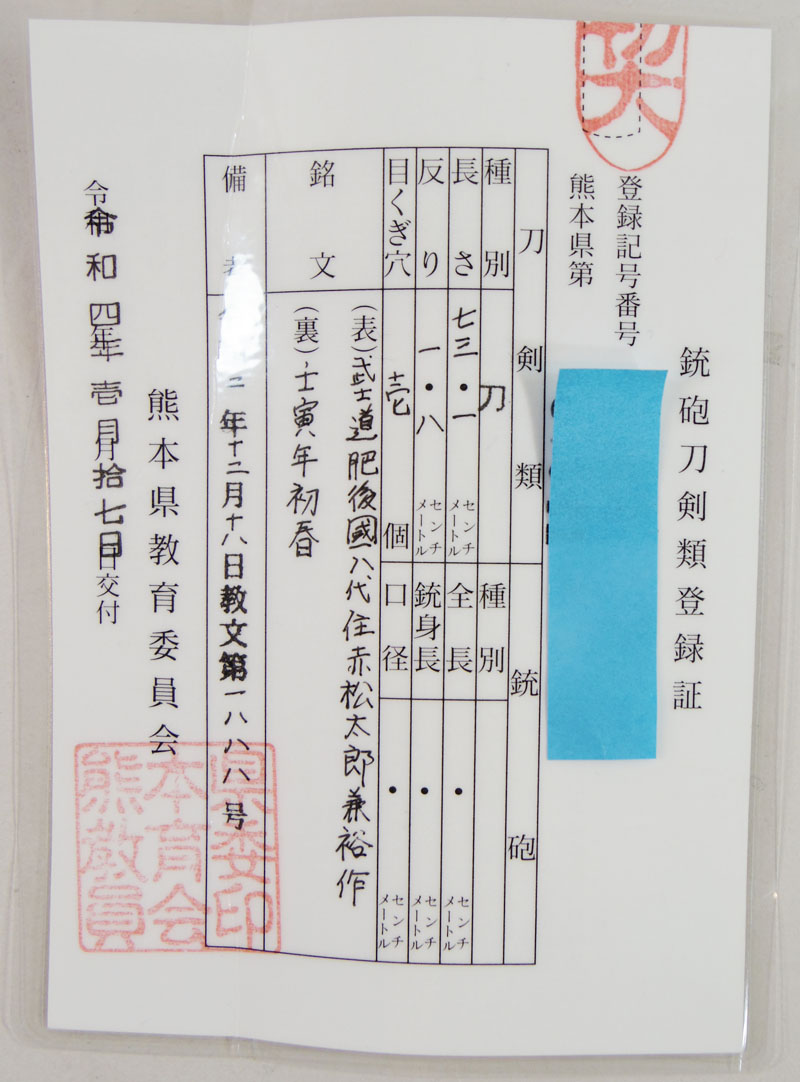 銃砲刀剣類登録証
登録記号番号
熊本県第
刀剣類
銃砲
種別 刀
長さ 七三・一 センチメートル
反り 一・八 センチメートル
目くぎ穴 壱 個
種別
全長 ・ センチメートル
銃身長 ・ センチメートル
口径 ・ センチメートル
銘文
(表)武士道肥後國八代住赤松太郎兼裕作
(裏)壬寅年初春
備考
三年十二月十八日教文第一八八八号
熊本県教育委員会
令和四年壱月拾七日交付
県委印
本育会
熊教員